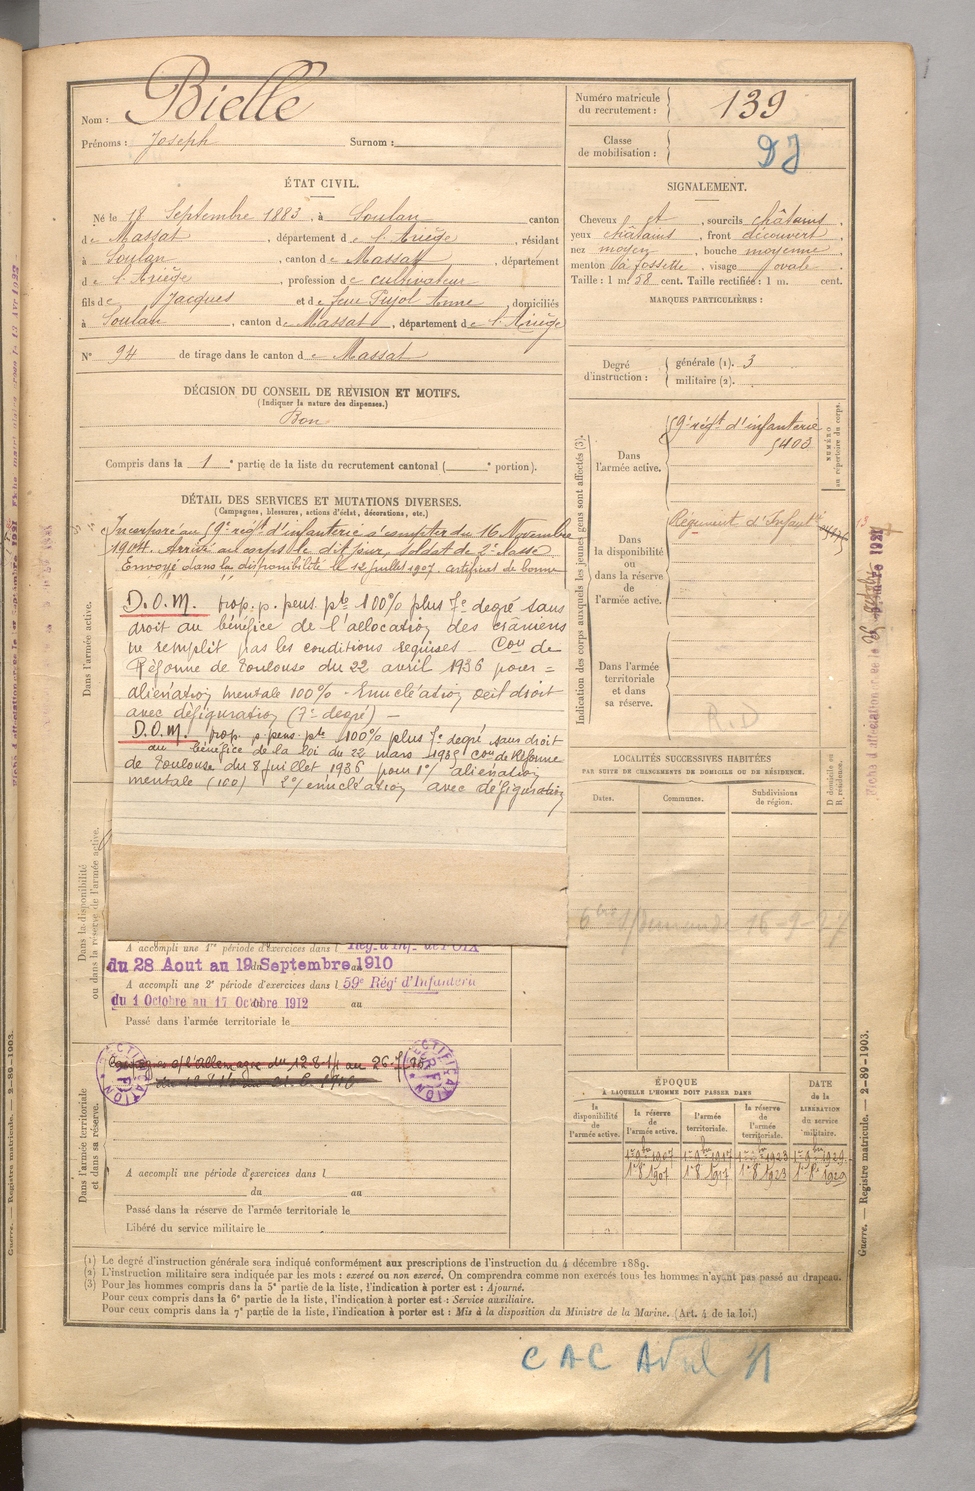 Nom : Bielle
Prénoms : Joseph Surnom :
Numéro matricule du recrutement : 139
Classe de mobilisation : DJ
ÉTAT CIVIL.
Né le 18 Septembre 1883, à Soulan canton
de Massat, département de l'Ariège, résidant
à Soulan, canton de Massat, département
de l'Ariège, profession de cultivateur
fils de Jacques et de Jeu Pujol Anne, domiciliés
à Soulan, canton de Massat, département de l'Ariège
N° 94 de tirage dans le canton de Massat
SIGNALEMENT.
Cheveux et, sourcils châtains,
yeux châtains, front découvert,
nez moyen, bouche moyenne,
menton à fossette, visage ovale.
Taille : 1 m. 58 cent. Taille rectifiée : 1 m. cent.
MARQUES PARTICULIÈRES :
DÉCISION DU CONSEIL DE REVISION ET MOTIFS.
(Indiquer la nature des dispenses.)
Bon
Compris dans la 1e partie de la liste du recrutement cantonal ( e portion).
Degré d'instruction :
générale (1). 3
militaire (2).
DÉTAIL DES SERVICES ET MUTATIONS DIVERSES.
(Campagnes, blessures, actions d'éclat, décorations, etc.)
Incorporé au 59e régt d'infanterie à compter du 16 Novembre
1904. Arrivé au corps le dit jour, soldat de 2e classe
Envoyé dans la disponibilité le 12 juillet 1907. certificat de bonne
Dans l'armée active.
D.O.M. prop. p. pens. pte 100% plus 7e degré sans
droit au bénéfice de l'allocation des crâniens
ne remplit pas les conditions requises - Con de
Réforme de Toulouse du 22 avril 1936 pour =
aliénation mentale 100% - Enucléation oeil droit
avec défiguration (7e degré) -
D.O.M. prop. p. pens. pte 100% plus 7e degré sans droit
au bénéfice de la loi du 22 mars 1935 Con de Réforme
de Toulouse du 8 juillet 1936 pour 1°/ aliénation
mentale (100) 2°/ enucléation avec défiguration
Dans la disponibilité ou dans la réserve de l'armée active.
A accompli une 1re période d'exercices dans l Rég. d'Inf. de FOIX
du 28 Aout au 19 Septembre 1910
A accompli une 2e période d'exercices dans l 59e Régt d'Infanterie
du 1 Octobre au 17 Octobre 1912 au
Passé dans l'armée territoriale le
RECTIFICATION
RF
RECTIFICATION
RF
Dans l'armée territoriale et dans sa réserve.
A accompli une période d'exercices dans l
du au
Passé dans la réserve de l'armée territoriale le
Libéré du service militaire le
Indication des corps auxquels les jeunes gens sont affectés (3).
Dans l'armée active.
59e régt d'infanterie
5403
NUMÉRO au répertoire du corps.
Dans la disponibilité ou dans la réserve de l'armée active.
Régiment d'Infante
Dans l'armée territoriale et dans sa réserve.
R.D
LOCALITÉS SUCCESSIVES HABITÉES
PAR SUITE DE CHANGEMENTS DE DOMICILE OU DE RÉSIDENCE.
Dates. Communes. Subdivisions de région.
D domicile ou R. résidence.
ÉPOQUE
À LAQUELLE L'HOMME DOIT PASSER DANS
la disponibilité de l'armée active. la réserve de l'armée active. l'armée territoriale. la réserve de l'armée territoriale.
DATE de la LIBÉRATION du service militaire.
1er 9bre 1907 1er 9bre 1917 1er 9bre 1923 1er 9bre 1929
1er 8bre 1907 1er 8bre 1917 1er 8bre 1923 1er 8bre 1929
(1) Le degré d'instruction générale sera indiqué conformément aux prescriptions de l'instruction du 4 décembre 1889.
(2) L'instruction militaire sera indiquée par les mots : exercé ou non exercé. On comprendra comme non exercés tous les hommes n'ayant pas passé au drapeau.
(3) Pour les hommes compris dans la 5e partie de la liste, l'indication à porter est : Ajourné.
Pour ceux compris dans la 6e partie de la liste, l'indication à porter est : Service auxiliaire.
Pour ceux compris dans la 7e partie de la liste, l'indication à porter est : Mis à la disposition du Ministre de la Marine. (Art. 4 de la loi.)
Guerre. — Registre matricule. — 2-89-1903.
Guerre. — Registre matricule. — 2-89-1903.
CAC Avril 31